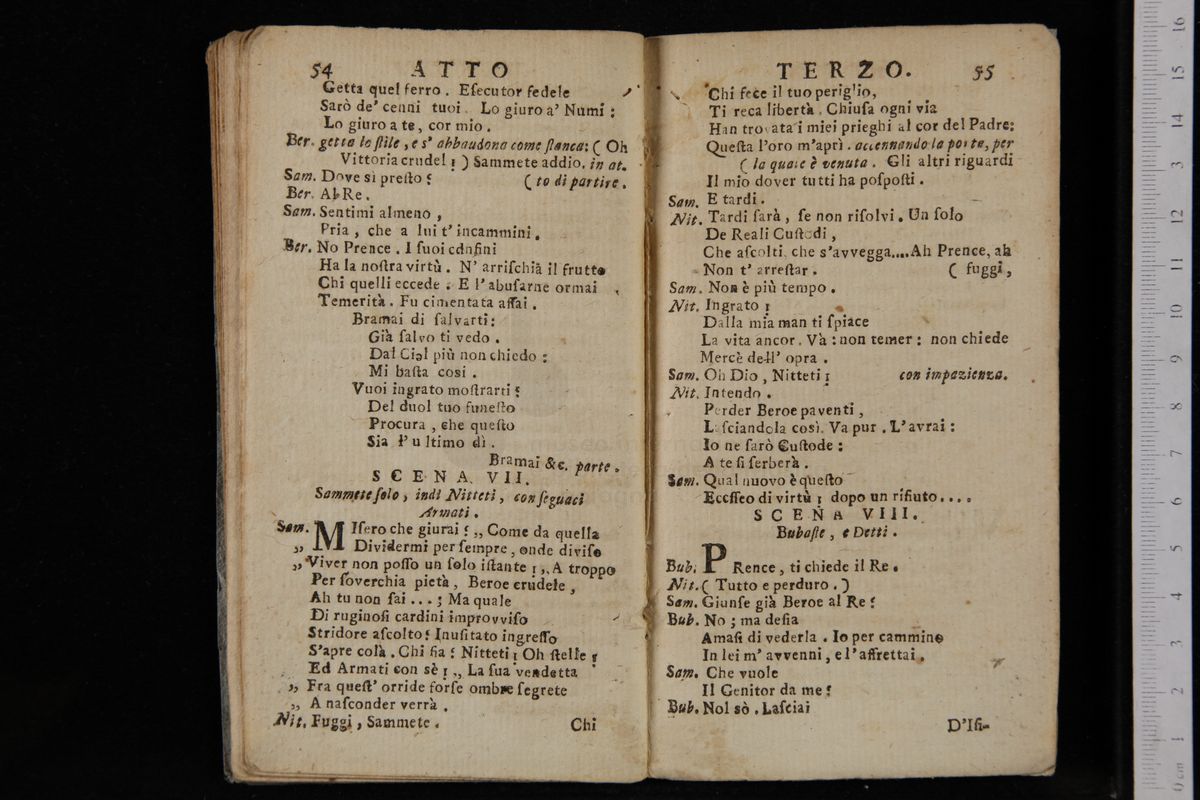 54 ATTO
Getta quel ferro . Eſecutor fedele
Sarò de' cenni tuoi . Lo giuro a' Numi :
Lo giuro a te, cor mio .
Ber. getta lo ſtile , e s' abbandona come ſtanca: ( Oh
Vittoria crudel ! ) Sammete addio. in at.
Sam. Dove sì preſto ? ( to di partire .
Ber. Al Re .
Sam. Sentimi almeno ,
Pria , che a lui t' incammini .
Ber. No Prence . I ſuoi confini
Ha la noſtra virtù . N' arriſchia il frutto
Chi quelli eccede . E l' abuſarne ormai
Temerità . Fu cimentata aſſai .
Bramai di ſalvarti :
Già ſalvo ti vedo .
Dal Ciel più non chiedo :
Mi baſta così .
Vuoi ingrato moſtrarti ?
Del duol tuo funeſto
Procura , che queſto
Sia l' ultimo dì .
Bramai &c. parte .
SCENA VII.
Sammete ſolo , indi Nitteti , con ſeguaci
Armati .
Sam. Miſero che giurai ? ,, Come da quella
,, Dividermi per ſempre , onde diviſo
,, Viver non poſſo un ſolo iſtante ! ,, A troppo
Per ſoverchia pietà , Beroe crudele ,
Ah tu non ſai ... ; Ma quale
Di ruginoſi cardini improvviſo
Stridore aſcolto ? Inuſitato ingreſſo
S'apre colà . Chi fia ? Nitteti ! Oh ſtelle !
Ed Armati con sè ! ,, La ſua vendetta
,, Fra queſt' orride forſe ombre ſegrete
,, A naſconder verrà .
Nit. Fuggi , Sammete .
Chi
TERZO. 55
Chi fece il tuo periglio,
Ti reca libertà . Chiuſa ogni via
Han trovata i miei prieghi al cor del Padre:
Queſta l'oro m'aprì . accennando la porta, per
( la quale è venuta . Gli altri riguardi
Il mio dover tutti ha poſpoſti .
Sam. E tardi .
Nit. Tardi ſarà , ſe non riſolvi . Un ſolo
De Reali Cuſtodi ,
Che aſcolti, che s'avvegga....Ah Prence, ah
Non t' arreſtar . ( fuggi ,
Sam. Non è più tempo .
Nit. Ingrato !
Dalla mia man ti ſpiace
La vita ancor . Và : non temer : non chiede
Mercè dell' opra .
Sam. Oh Dio , Nitteti ! con impazienza.
Nit. Intendo .
Perder Beroe paventi ,
Laſciandola così. Va pur . L'avrai :
Io ne ſarò Cuſtode :
A te ſi ſerberà .
Sam. Qual nuovo è queſto
Ecceſſo di virtù ! dopo un rifiuto....
SCENA VIII.
Bubaſte , e Detti .
Bub. PRence , ti chiede il Re .
Nit. ( Tutto e perduro . )
Sam. Giunſe già Beroe al Re ?
Bub. No ; ma deſia
Amaſi di vederla . Io per cammino
In lei m' avvenni , e l' affrettai .
Sam. Che vuole
Il Genitor da me ?
Bub. Nol sò . Laſciai
D'Iſi-